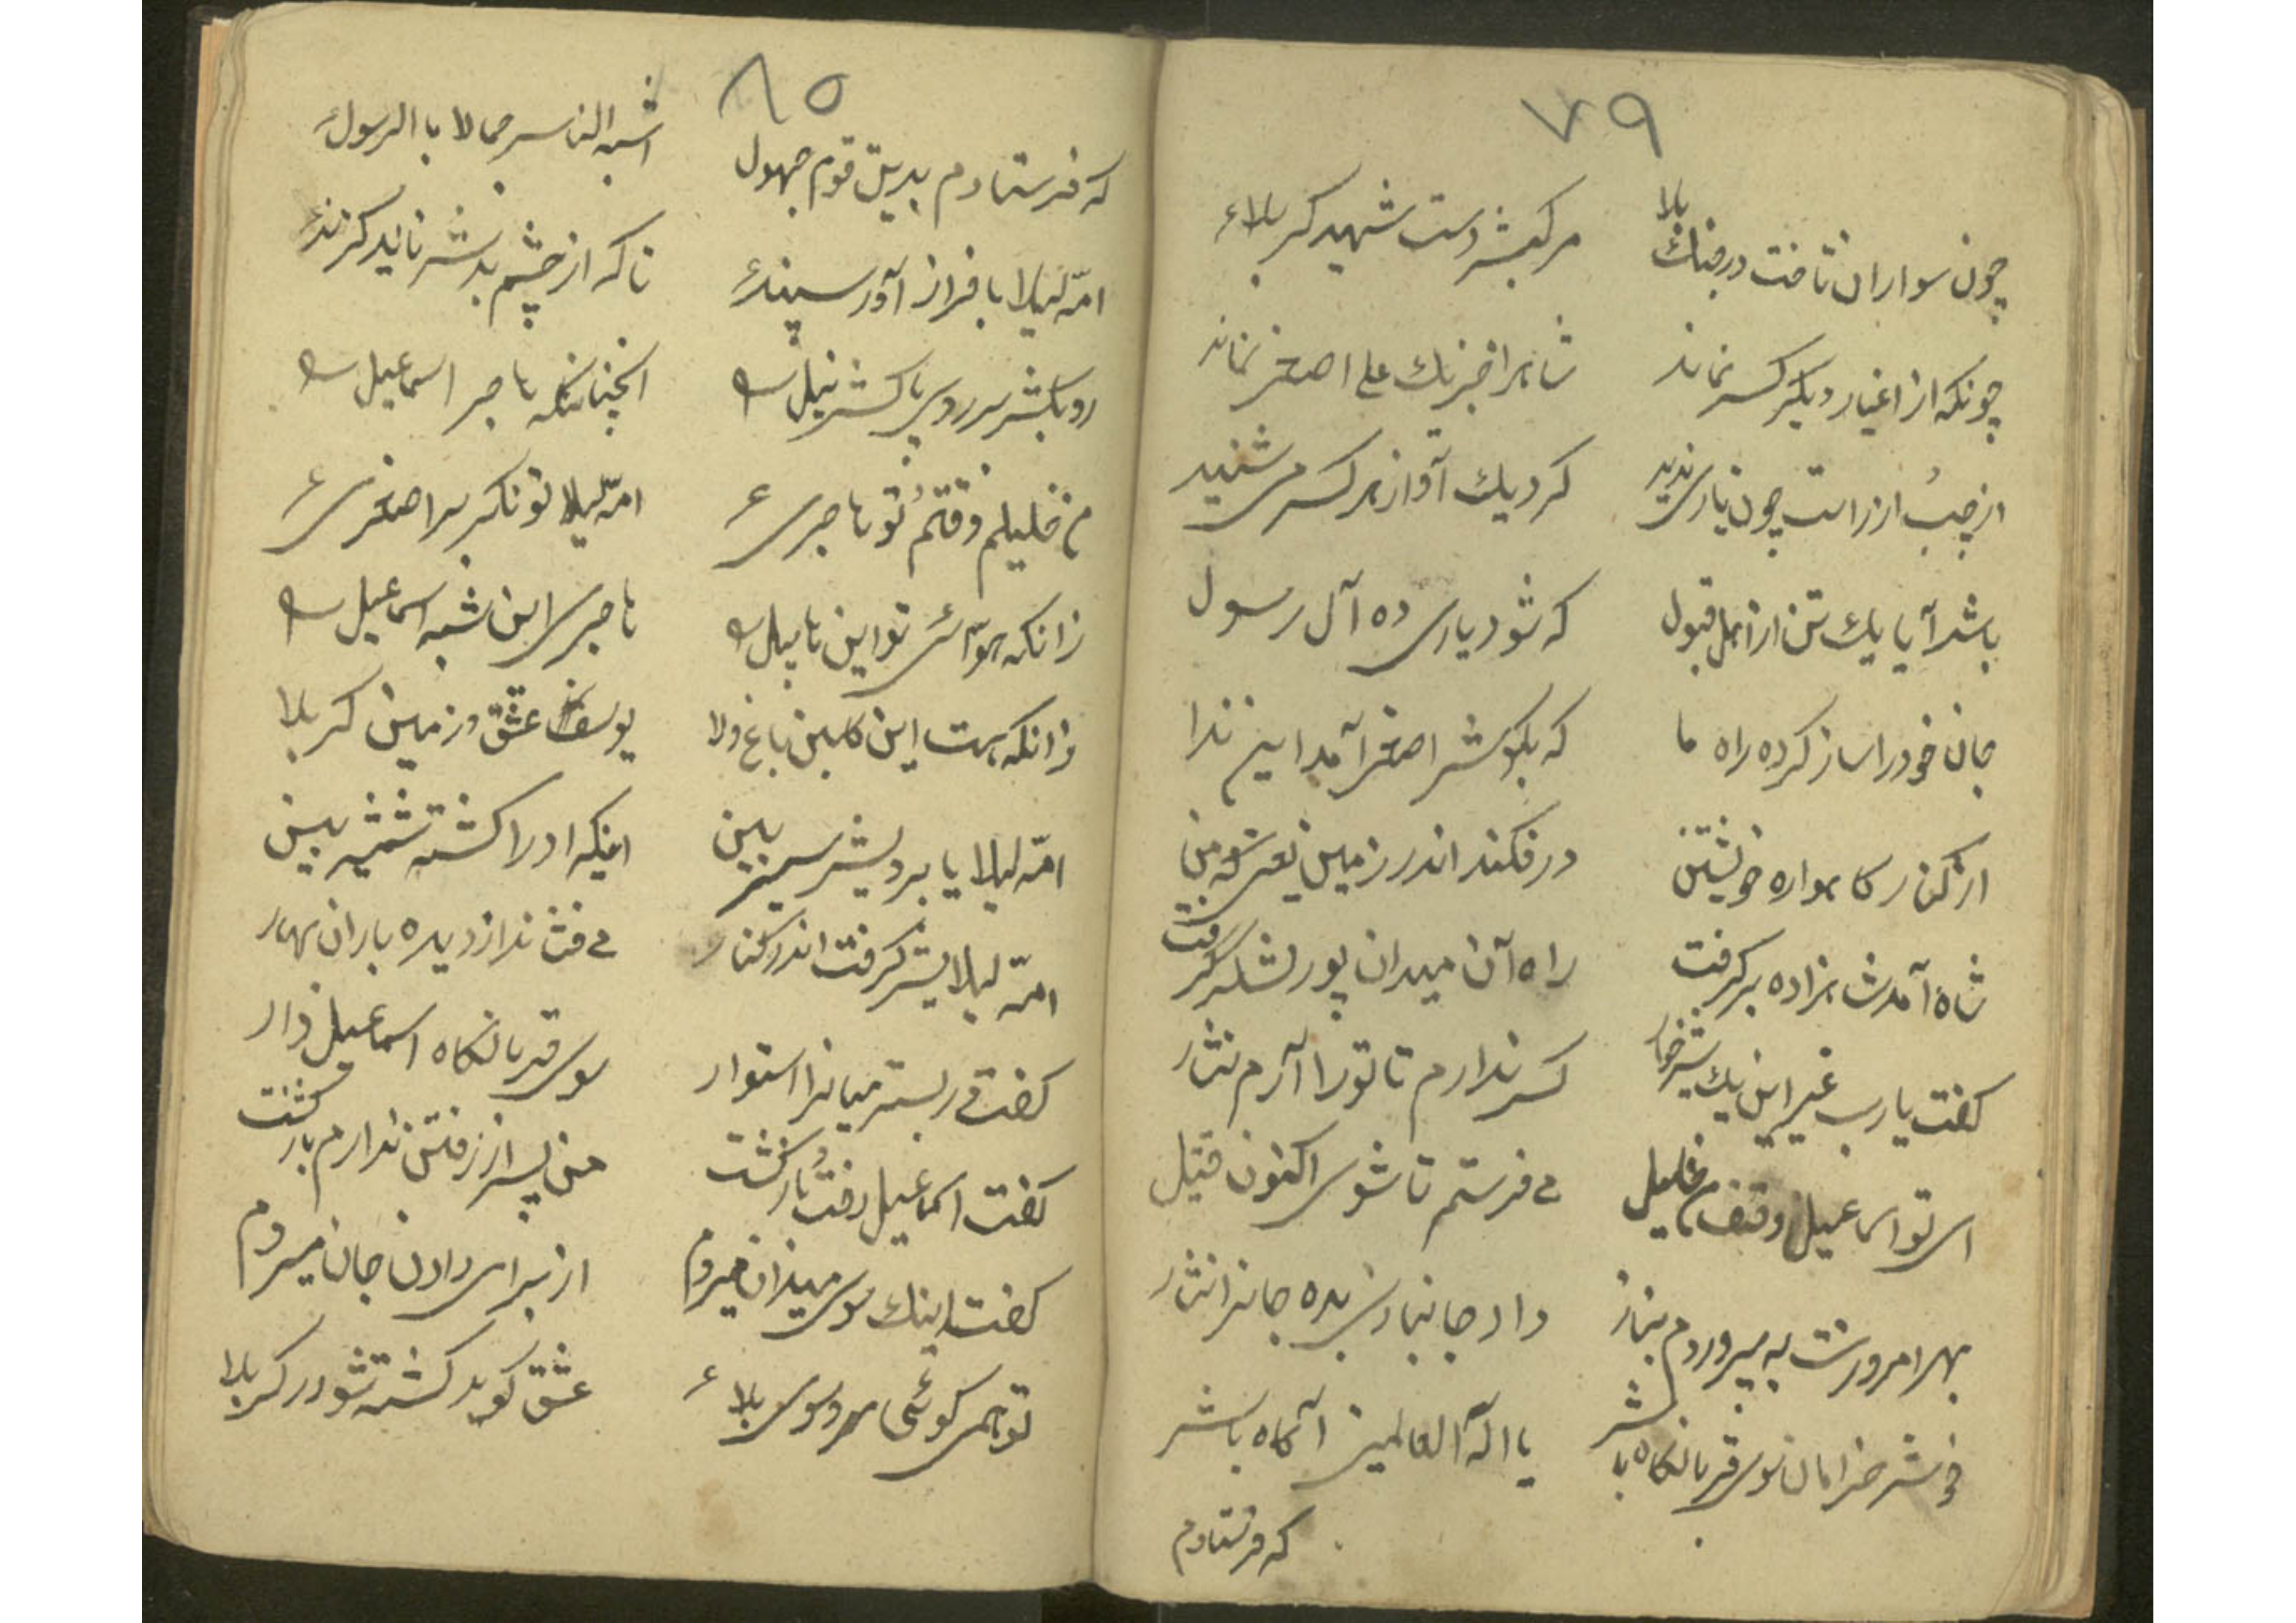 ۷۹
چون سواران تافت در جنك بلا مرکبش دست شهید کربلاء
چونکه از اغیار و دیگر کس نماند شاهرا جز یك علی اصغر نماند
از چپ از راست چون یاری ندید کرد یك آواز هر کس می شنید
باشد آیا یك تن از اهل قبول که شود یاری ده آل رسول
جان خود را ساز کرده راه ما که بگوش اصغر آمد این ندا
از کنار گاهواره خویشتن در فکند اندر زمین یعنی که من
شاه آمد شاهزاده بر گرفت راه آن میدان پور لشگر گرفت
گفت یا رب غیر این یك شیرخوار کس ندارم تا تو را آرم نثار
ای تو اسماعیل وقت من خلیل می فرستم تا شوی اکنون قتیل
بهر امروزت به پروردم بناز داد جانبازی بده جانرا نثار
خوش خرامان سوی قربانگاه باش یا اله العالمین آگاه باش
که فرستادم
۸۰
که فرستادم بدین قوم جهول اشبه الناس جمالا با الرسول
امّ لیلا با فراز آور سپند تا که از چشم بدش ناید گزند
رو بکش بر روی پاکش نیل انچنانکه هاجر اسماعیل
من خلیلم وقتم تو هاجری امّ لیلا تو نگر بر اصغری
زانکه تو این هابیل هاجری این شبه اسماعیل
زانکه هست این گلبن باغ ولا یوسف عشق در زمین کربلا
امّ لیلا یا برویش سیر ببین اینکه او را کشته شمشیر بین
امّ لیلا یش گرفت اندر کنار می فشاند از دیده باران بهار
گفت بستر میانرا استوار سوی قربانگاه اسماعیل وار
گفت اسماعیل رفت و بازگشت من پس از رفتن ندارم بازگشت
گفت اینك سوی میدان میروم از برای دادن جان میروم
تو همی گوئی مرو سوی بلاء عشق گوید کشته شو در کربلا